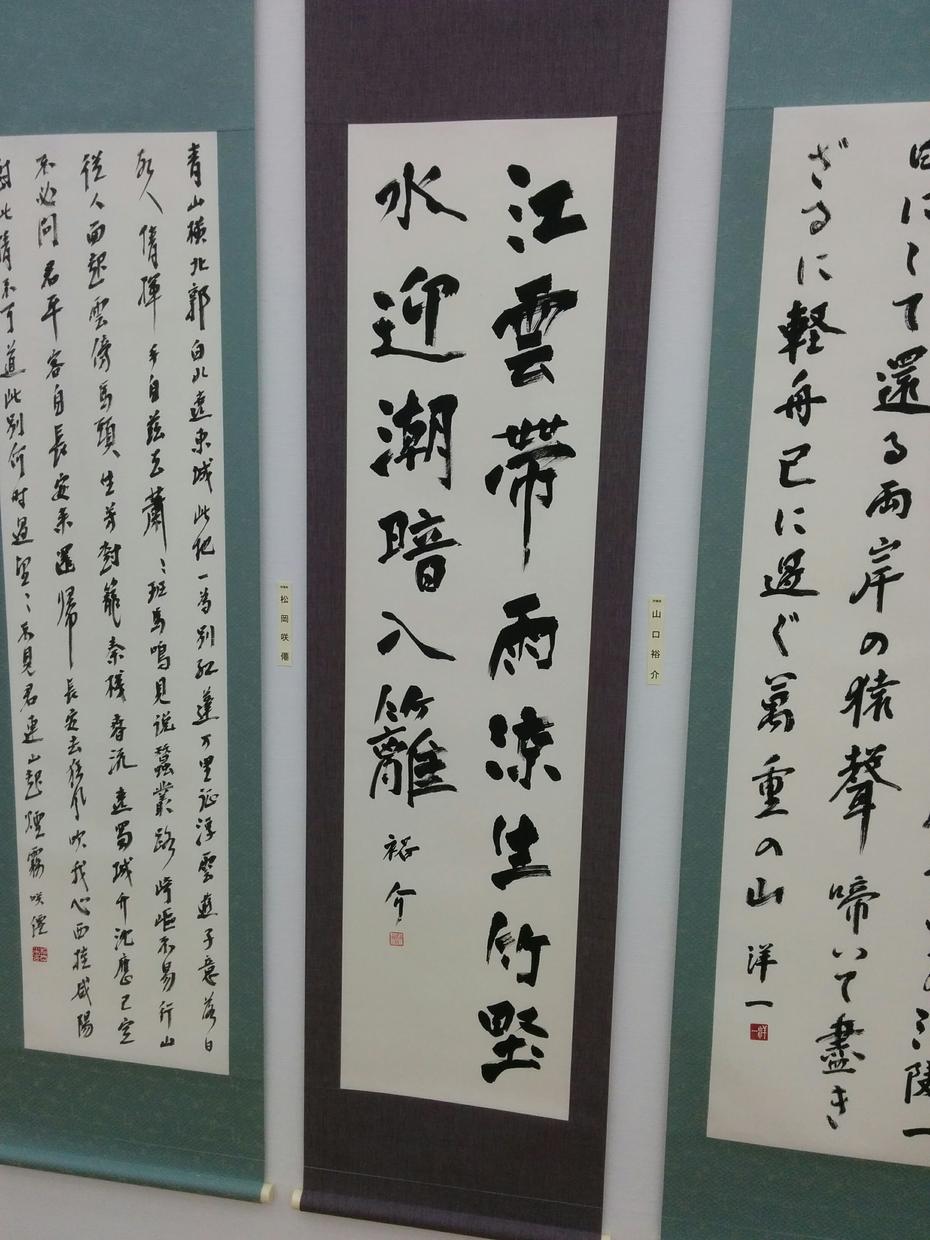 の江陵一
日にして還る両岸の猿聲啼いて盡き
ざるに軽舟已に過ぐ萬重の山 洋一
山口裕介
江雲帯雨涼生竹墅
水迎潮暗入籬 裕介
松岡咲僊
青山横北郭白水遶東城此地一為別孤蓬万里征浮雲遊子意落日
故人情揮手自茲去蕭〻班馬鳴見説蠶叢路崎嶇不易行山
従人面起雲傍馬頭生芳樹籠秦桟春流遶蜀城升沈應已定
不必問君平客自長安来還帰長安去狂風吹我心西挂咸陽
樹此情不可道此別何時遇望〻不見君連山起煙霧 咲僊